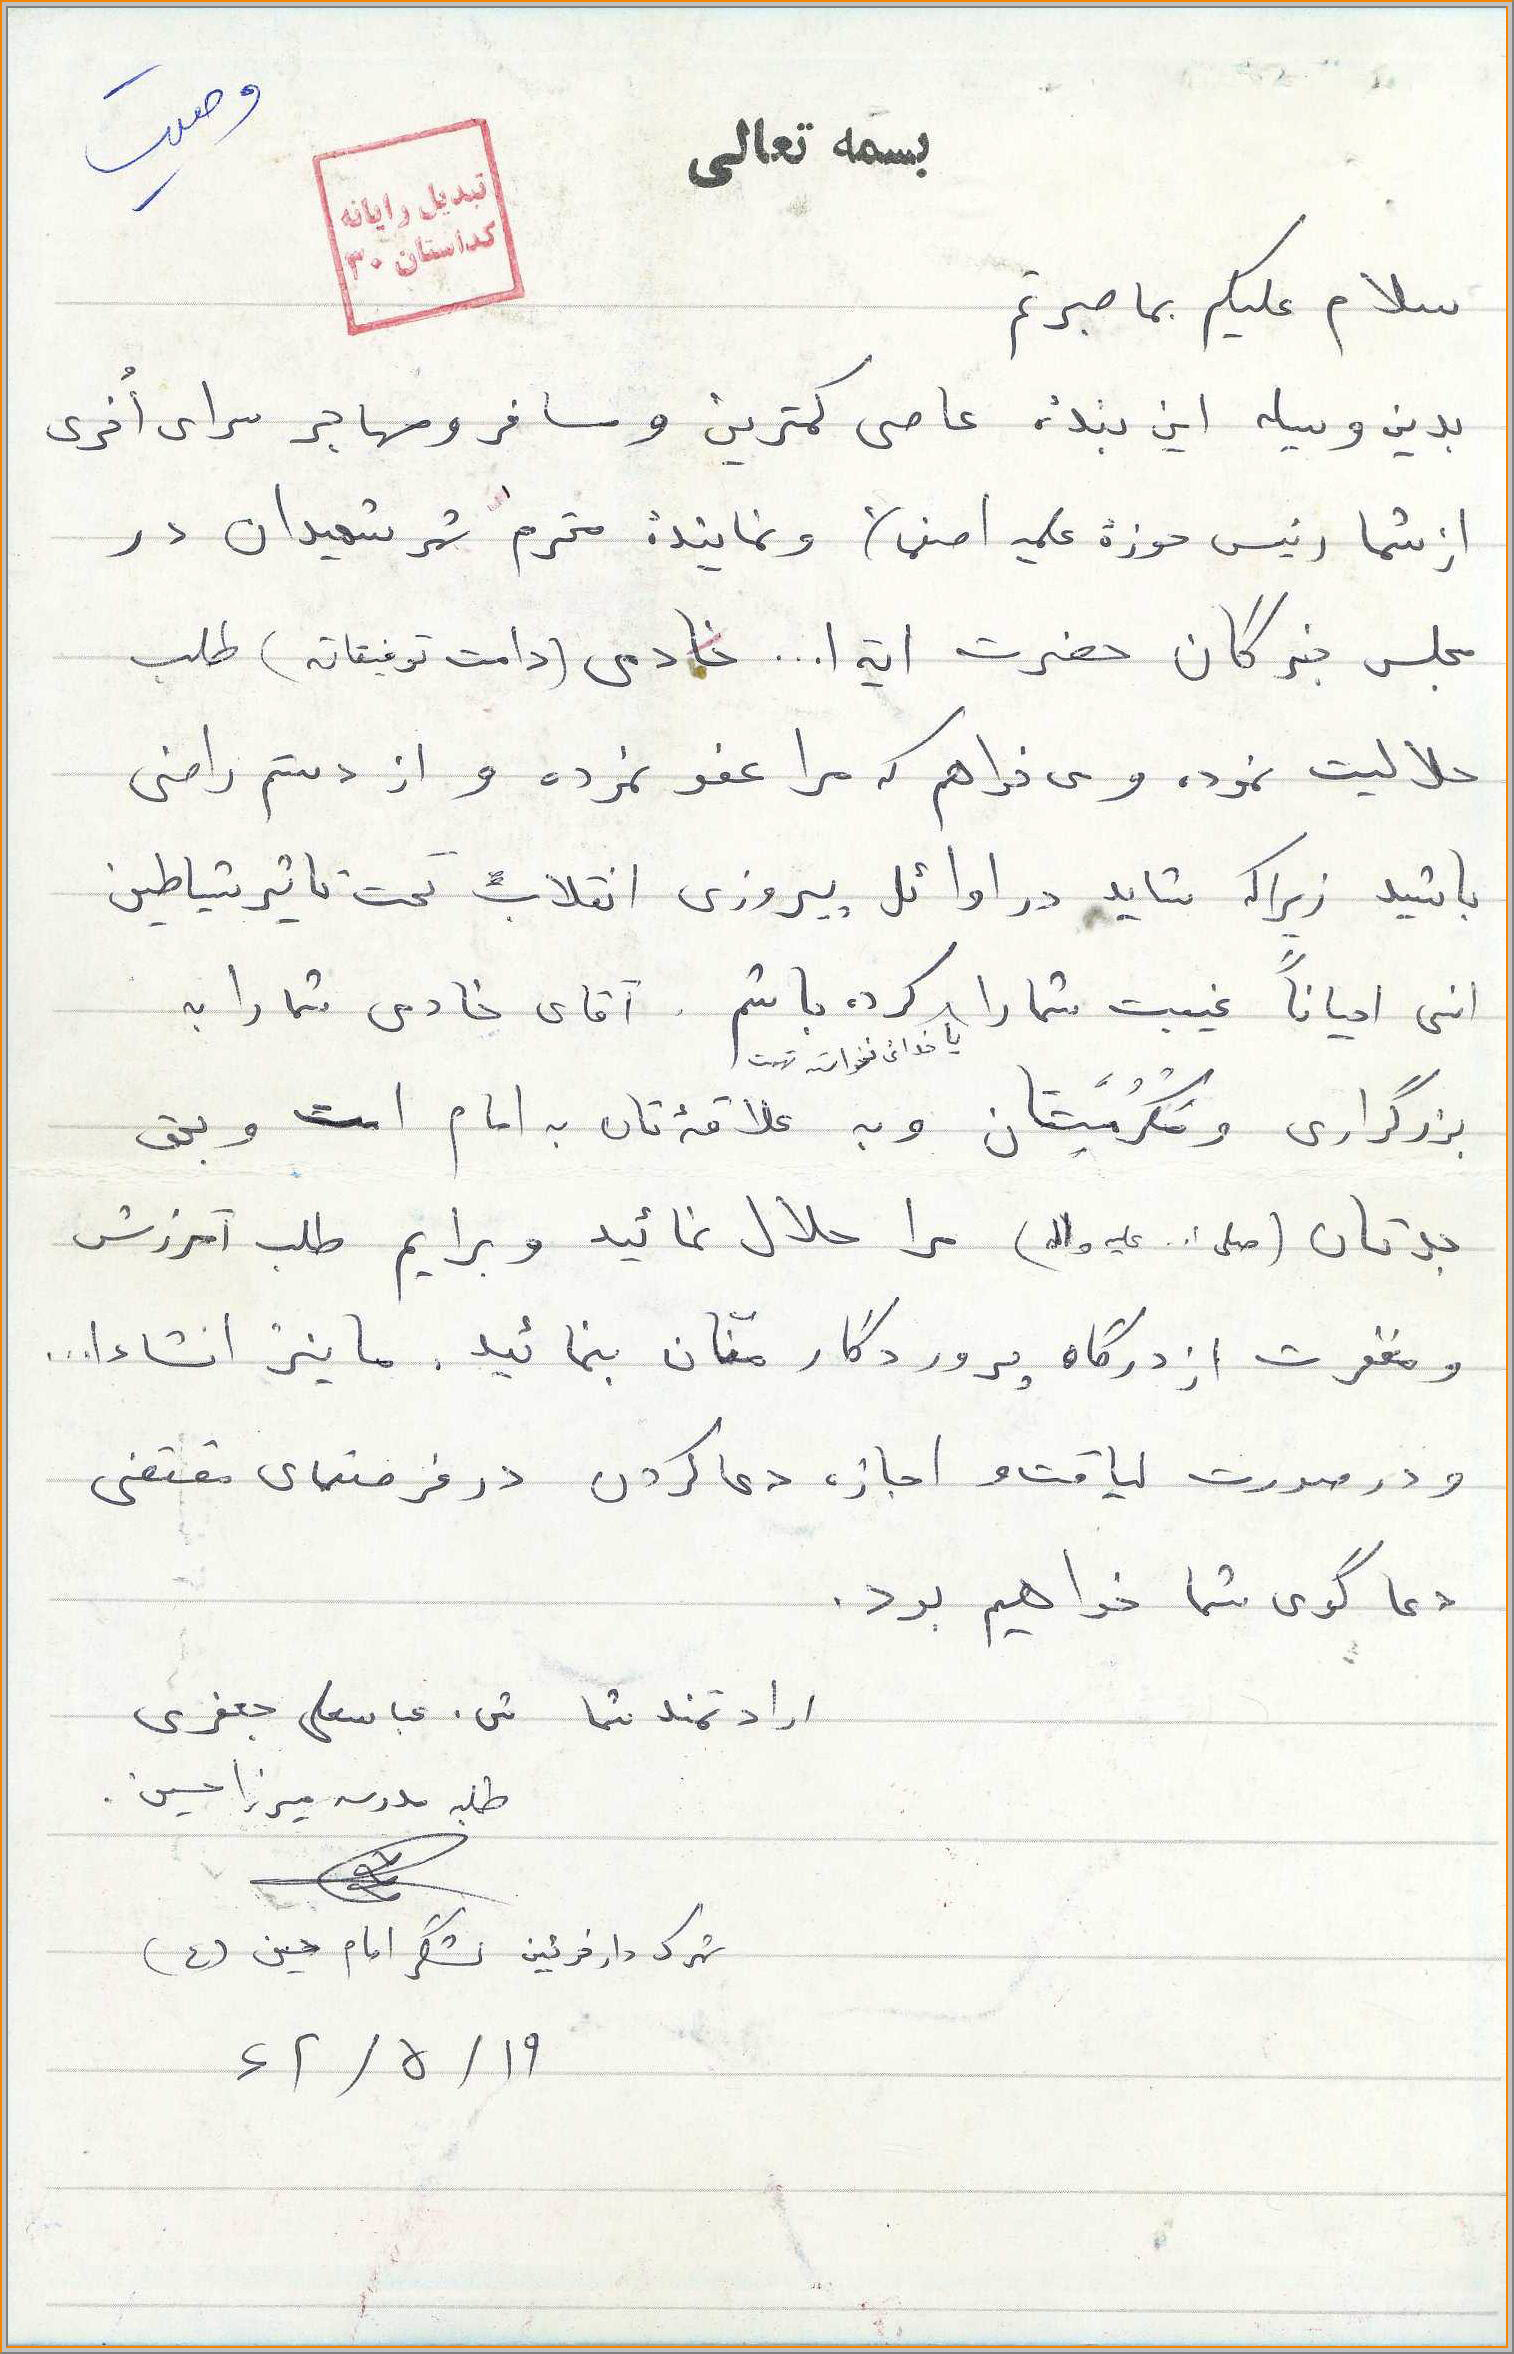 وصیت
بسمه تعالی
تبدیل رایانه
کداستان ۳۰
سلام علیکم بما صبرتم
بدین وسیله این بندهٔ عاصی کمترین و مسافر و مهاجر سرای اُخری
از شما رئیس حوزهٔ علمیه اصفهان و نمایندهٔ محترم شهر شهیدان در
مجلس خبرگان حضرت ایة ا... خادمی (دامت توفیقاته) طلب
حلالیت نموده و می خواهم که مرا عفو نموده و از دستم راضی
باشید زیرا که شاید در اوائل پیروزی انقلاب تحت تاثیر شیاطین
انسی احیاناً غیبت شما را کرده باشم . آقای خادمی شما را به
یا خدای نخواسته تهمت
بزرگواری و مَکرُمَیِتتان و به علاقهٔ تان به امام امت و بحق
جدتان (صلی ا.. علیه واله) مرا حلال نمائید و برایم طلب آمرزش
و مغفرت از درگاه پروردگار منّان بنمائید . ما نیز انشاءا...
و در صورت لیاقت و اجازه دعا کردن در فرصتهای مقتضی
دعا گوی شما خواهیم بود .
ارادتمند شما ش . عباسعلی جعفری
طلبه مدرسه میرزا حسین .
شهرک دارخوئین لشگر امام حسین (ع)
۶۲/۵/۱۹